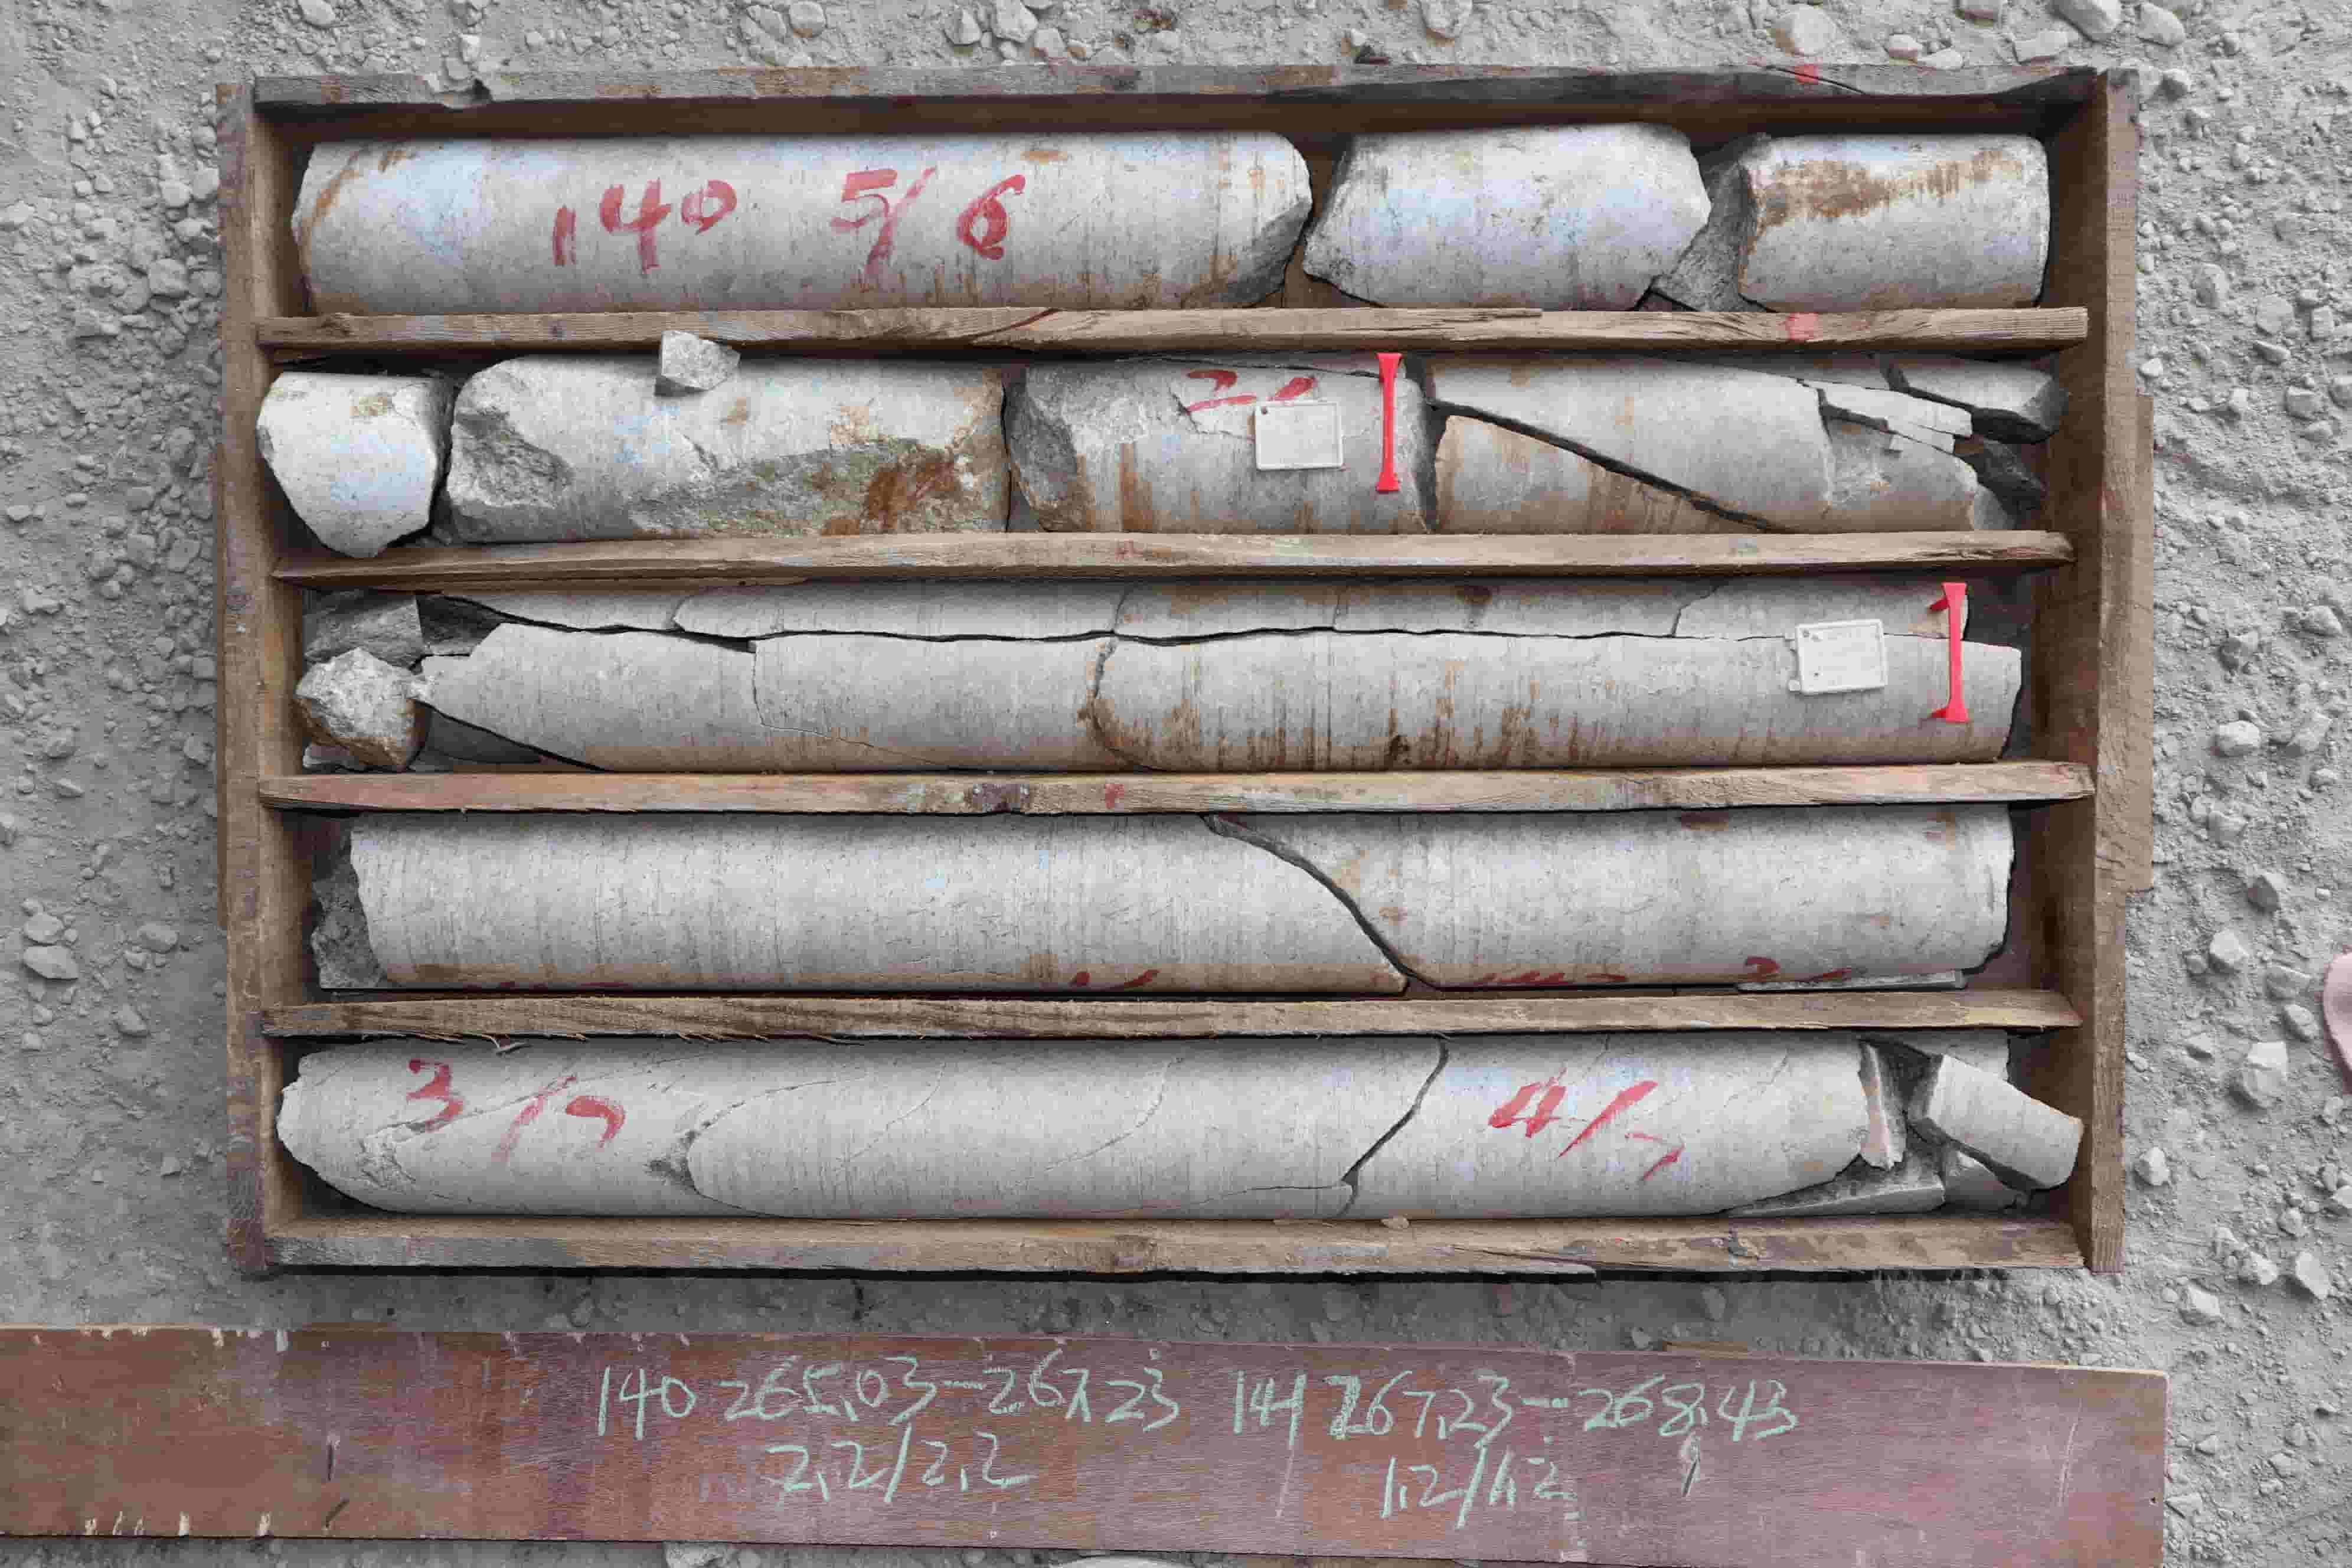 140 5/6
3/7
4/7
140 265.03-267.23 141 267.23-268.43
2.2/2.2 1.2/1.2